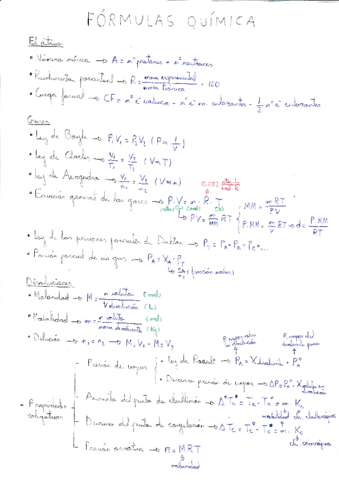 FÓRMULAS QUÍMICA
El átomo
• Número másico → A = nº protones + nº neutrones
• Rendimiento porcentual → R = masa experimental / masa teórica · 100
• Carga formal → CF = nº é valencia - nº é no enlazantes - 1/2 nº é enlazantes
Gases
• Ley de Boyle → P₁V₁ = P₂V₂ (P α 1/V)
• Ley de Charles → V₁/T₁ = V₂/T₂ (V α T)
• Ley de Avogadro → V₁/n₁ = V₂/n₂ (V α n)
0.082
• Ecuación general de los gases → P · V = n · R · T
↳ PV = m/MM RT
MM = mRT/PV
P.MM = m/V RT → d = P.MM/RT
• Ley de las presiones parciales de Dalton → P_T = P_A + P_B + P_C ...
• Presión parcial de un gas → P_A = X_A · P_T
↳ (fracción molar)
Disoluciones
• Molaridad → M = n soluto (mol) / V disolución (L)
• Molalidad → m = n soluto (mol) / masa disolvente (Kg)
• Dilución → n₁ = n₂ → M₁V₁ = M₂V₂
• Propiedades coligativas
- Presión de vapor
• Ley de Raoult → P_A = X disolvente · P°_A
• Descenso presión de vapor →
- Aumento del punto de ebullición →
molalidad
- Descenso del punto de congelación →
- Presión osmótica → π = MRT
molaridad